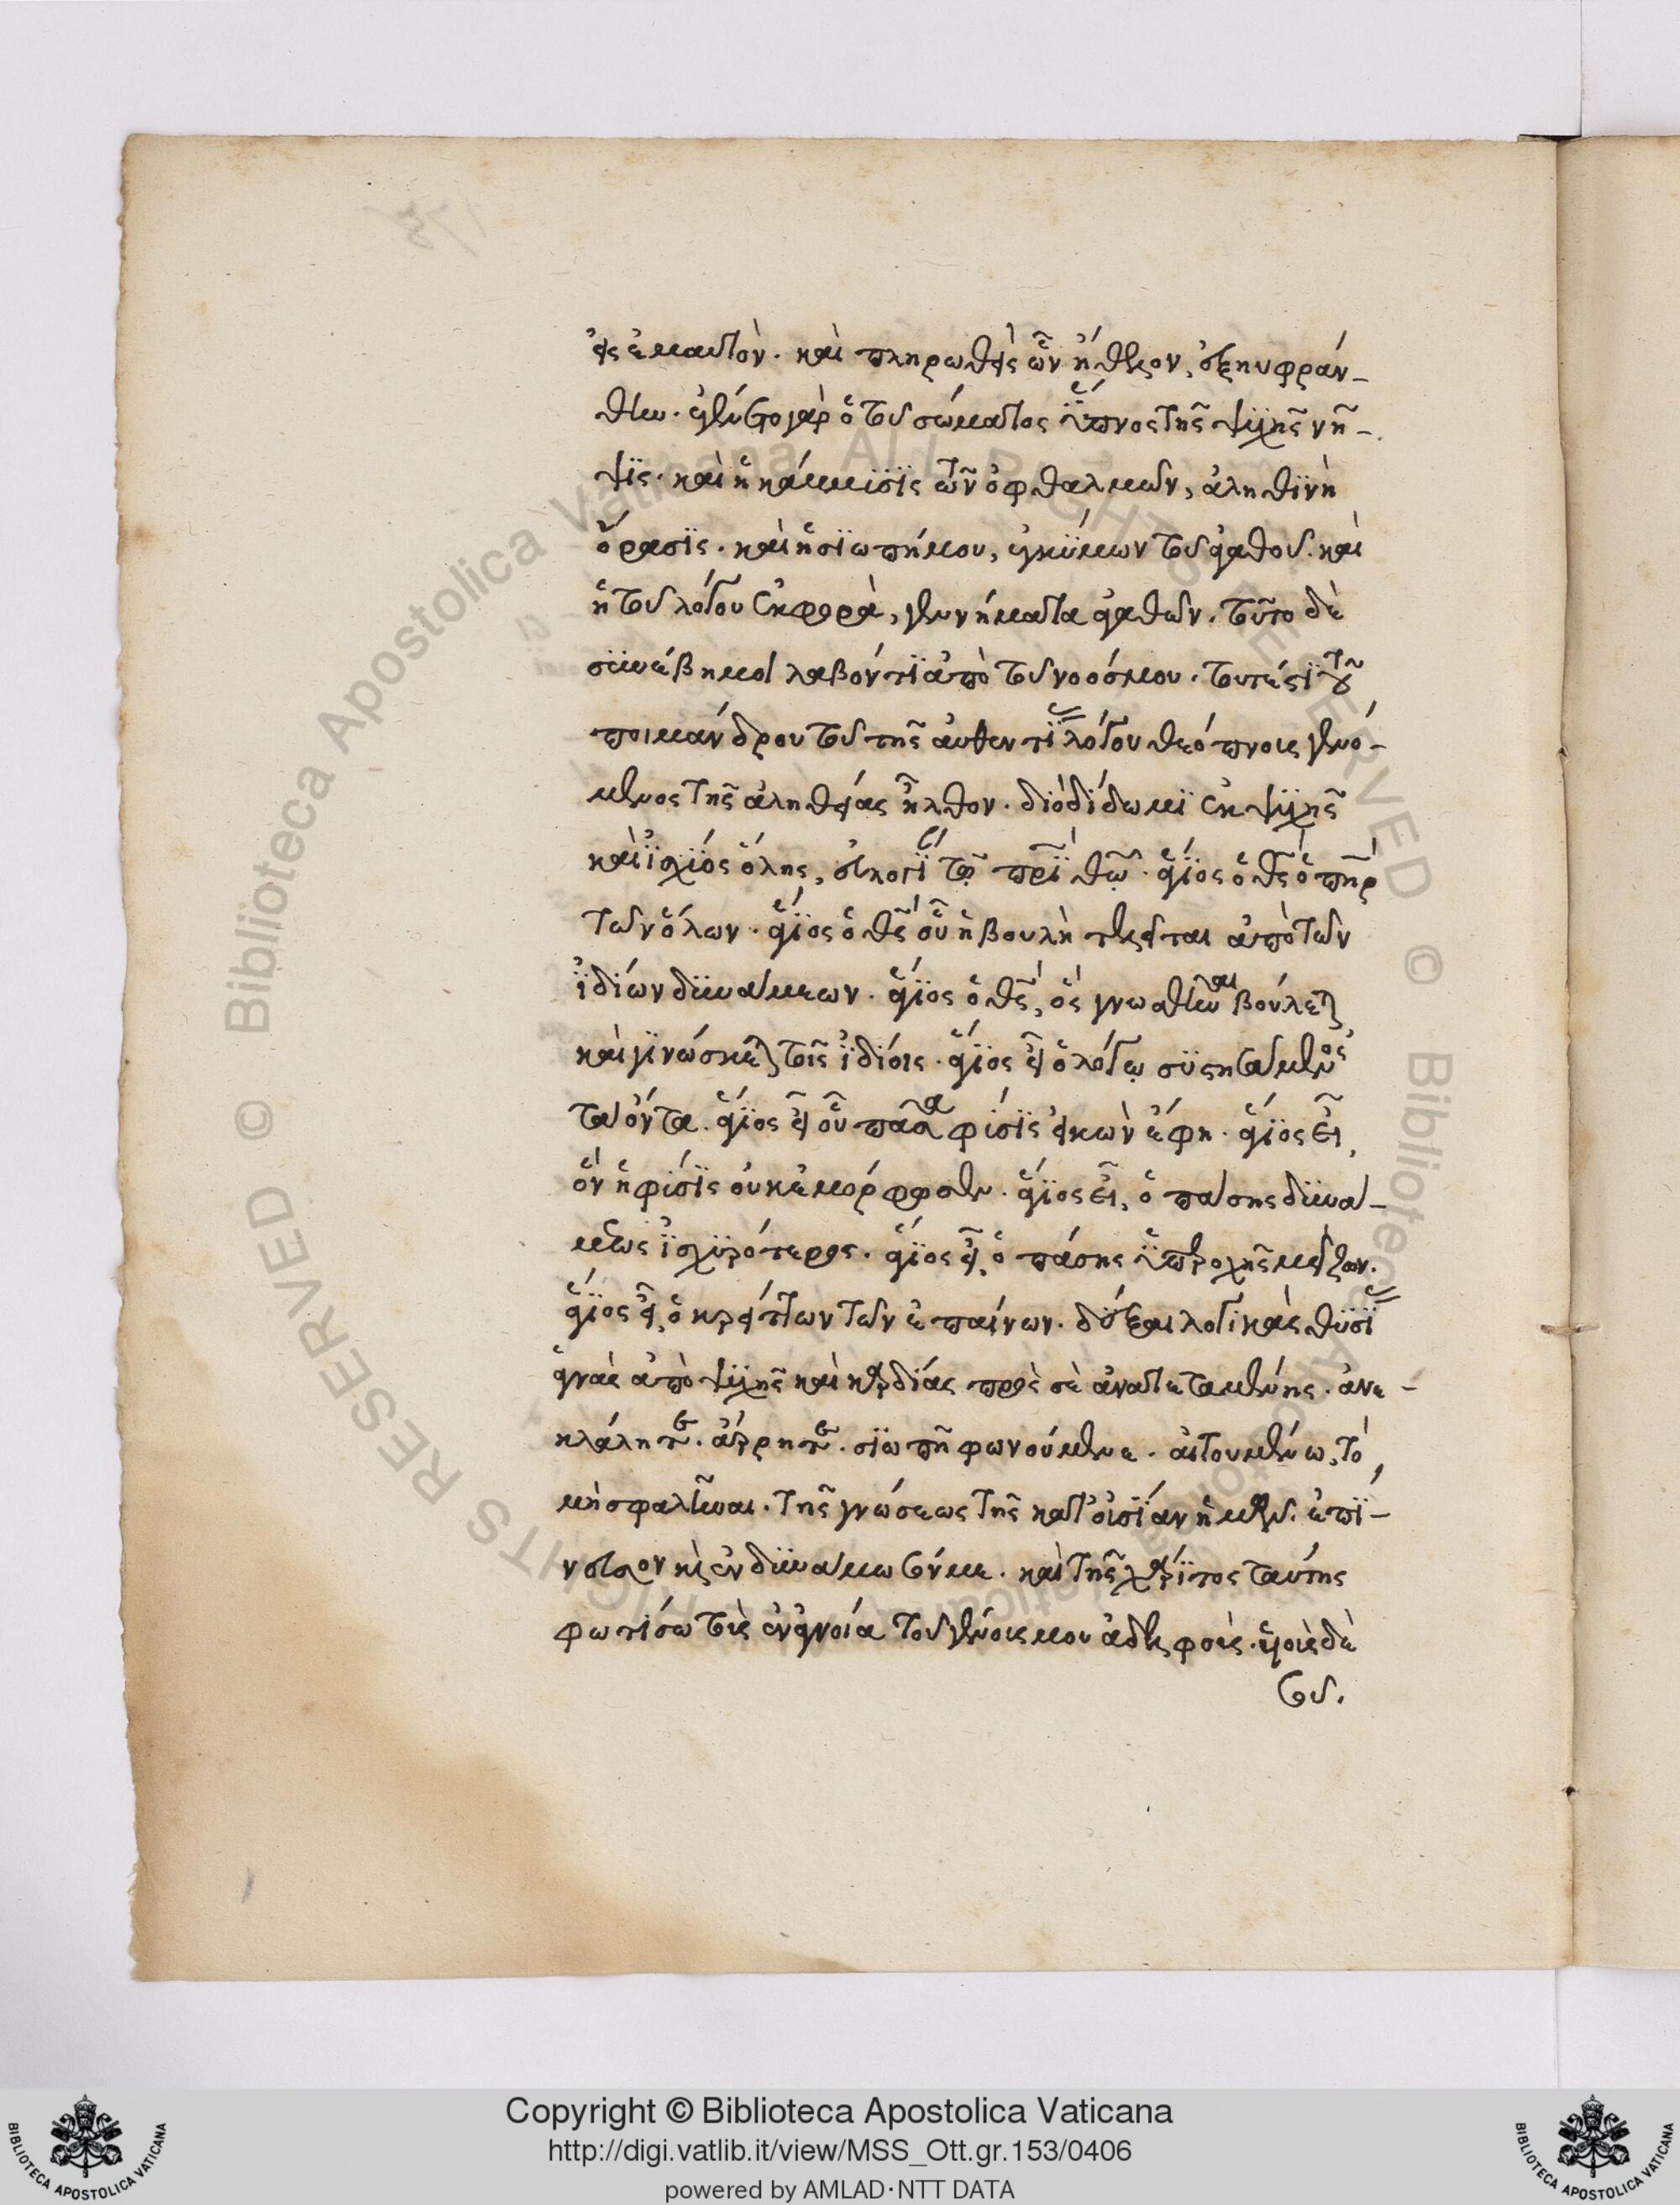 εἰς ἐμαυτὸν. καὶ πληρωθεὶς ὧν ἤθελον, ἐξηυφράν-
θην. ἐγένετο γὰρ ὁ τοῦ σώματος ὕπνος τῆς ψυχῆς νῆ-
ψις. καὶ ἡ κάμμυσις τῶν ὀφθαλμῶν, ἀληθινὴ
ὅρασις. καὶ ἡ σιωπή μου, ἐγκύμων τοῦ ἀγαθοῦ. καὶ
ἡ τοῦ λόγου ἐκφορὰ, γεννήματα ἀγαθῶν. τοῦτο δὲ
συνέβη μοι λαβόντι ἀπὸ τοῦ νοός μου. τουτέστι τοῦ
ποιμάνδρου τοῦ τῆς αὐθεντίας λόγου θεόπνους γενό-
μενος τῆς ἀληθείας ἦλθον. διὸ δίδωμι ἐκ ψυχῆς
καὶ ἰσχύος ὅλης, εὐλογίαν τῷ πρῒ θῶ. ἅγιος ὁ θς ὁ πηρ
τῶν ὅλων. ἅγιος ὁ θς οὗ ἡ βουλὴ τελεῖται ἀπὸ τῶν
ἰδίων δυνάμεων. ἅγιος ὁ θς, ὃς γνωσθῆναι βούλεται
καὶ γινώσκεται τοῖς ἰδίοις. ἅγιος εἶ ὁ λόγῳ συστησάμενος
τὰ ὄντα. ἅγιος εἶ οὗ πᾶσα φύσις εἰκὼν ἔφη. ἅγιος εἶ,
ὃν ἡ φύσις οὐκ ἐμόρφωσεν. ἅγιος εἶ, ὁ πάσης δυνά-
μεως ἰσχυρότερος. ἅγιος εἶ, ὁ πάσης ὑπεροχῆς μείζων.
ἅγιος εἶ, ὁ κρείττων τῶν ἐπαίνων. δέξαι λογικὰς θυσίας
ἁγνὰς ἀπὸ ψυχῆς καὶ καρδίας πρὸς σὲ ἀνατεταμένης. ἀνε-
κλάλητε. ἄρρητε. σιωπῇ φωνούμενε. αἰτουμένω, τὸ
μὴ σφαλῆναι. τῆς γνώσεως τῆς κατ᾽ οὐσίαν ἡμῶν. ἐπί-
νευσόν μοι καὶ ἐνδυνάμωσόν με. καὶ τῆς χάριτος ταύτης
φωτίσω τοὺς ἐν ἀγνοίᾳ τοῦ γένους μου ἀδελφοὺς. υἱοὺς δὲ
σοῦ.
Copyright © Biblioteca Apostolica Vaticana
http://digi.vatlib.it/view/MSS_Ott.gr.153/0406
powered by AMLAD·NTT DATA